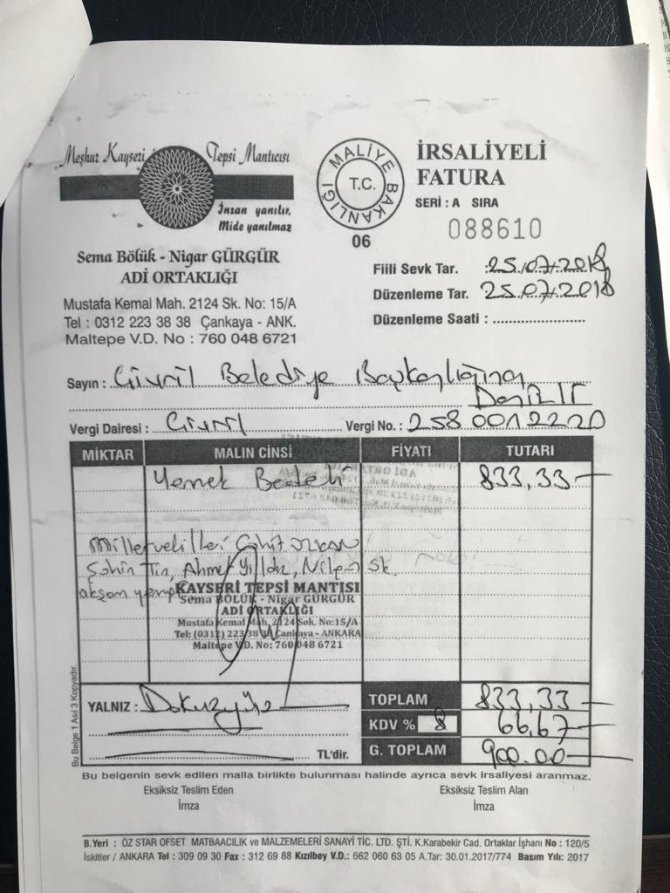 Meşhur Kayseri Tepsi Mantıcısı
İnsan yanılır,
Mide yanılmaz
Sema Bölük - Nigar GÜRGÜR
ADİ ORTAKLIĞI
Mustafa Kemal Mah. 2124 Sk. No: 15/A
Tel : 0312 223 38 38 Çankaya - ANK.
Maltepe V.D. No : 760 048 6721
MALİYE BAKANLIĞI
T.C.
06
İRSALİYELİ
FATURA
SERİ : A SIRA
088610
Fiili Sevk Tar. : 25.07.2018
Düzenleme Tar. 25.07.2018
Düzenleme Saati :
Sayın : Çivril Belediye Başkanlığına
Denizli
Vergi Dairesi : Çivril Vergi No. : 258 001 2220
MİKTAR MALIN CİNSİ FİYATI TUTARI
Yemek Bedeli 833,33
Milletvekilleri Cahit Özkan
Şahin Tin, Ahmet Yıldız, Nilgün
akşam yemeği
KAYSERİ TEPSİ MANTISI
Sema BÖLÜK - Nigar GÜRGÜR
ADİ ORTAKLIĞI
Mustafa Kemal Mah. 2124 Sok. No:15/A
Tel: (0312) 223 38 38 Çankaya - ANKARA
Maltepe V.D. No: 760 048 6721
Bu Belge 1 Asıl 3 Kopyadır.
YALNIZ : Dokuzyüz
TL'dir.
TOPLAM 833,33
KDV % 8 66,67
G. TOPLAM 900.00
Bu belgenin sevk edilen malla birlikte bulunması halinde ayrıca sevk irsaliyesi aranmaz.
Eksiksiz Teslim Eden Eksiksiz Teslim Alan
İmza İmza
B.Yeri : ÖZ STAR OFSET MATBAACILIK ve MALZEMELERİ SANAYİ TİC. LTD. ŞTİ. K.Karabekir Cad. Ortaklar İşhanı No : 120/5
İskitler / ANKARA Tel : 309 09 30 Fax : 312 69 88 Kızılbey V.D.: 662 060 63 05 A.Tar: 30.01.2017/774 Basım Yılı: 2017